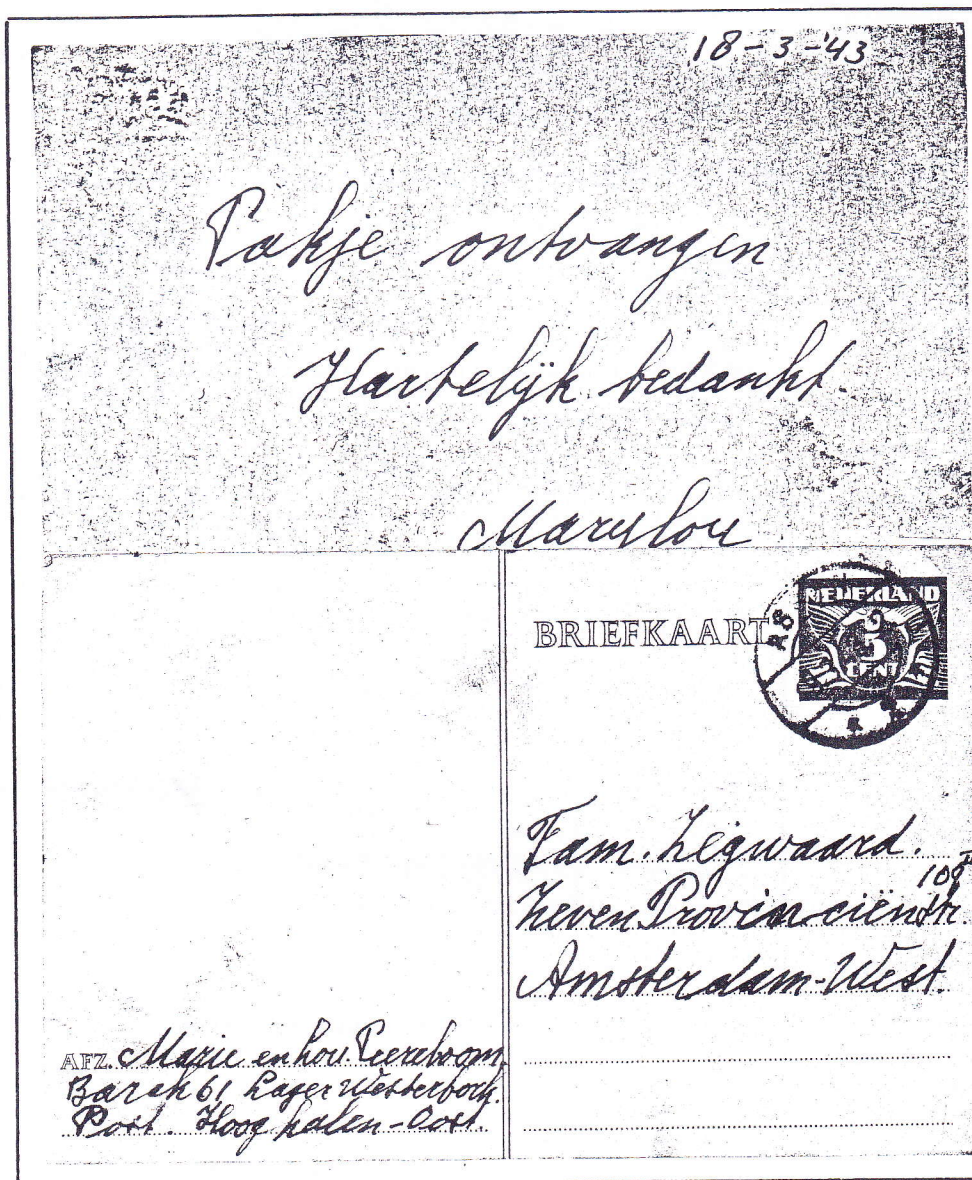 18-3-'43
Pakje ontvangen
Hartelijk bedankt.
Marylou
BRIEFKAART
NEDERLAND
5
CENT
Fam. Zegwaard.
109
Zeven Provinciënstr.
Amsterdam-West.
AFZ. Marie en Lou Peereboom.
Barak 61 Lager Westerbork.
Post. Hooghalen-Oost.